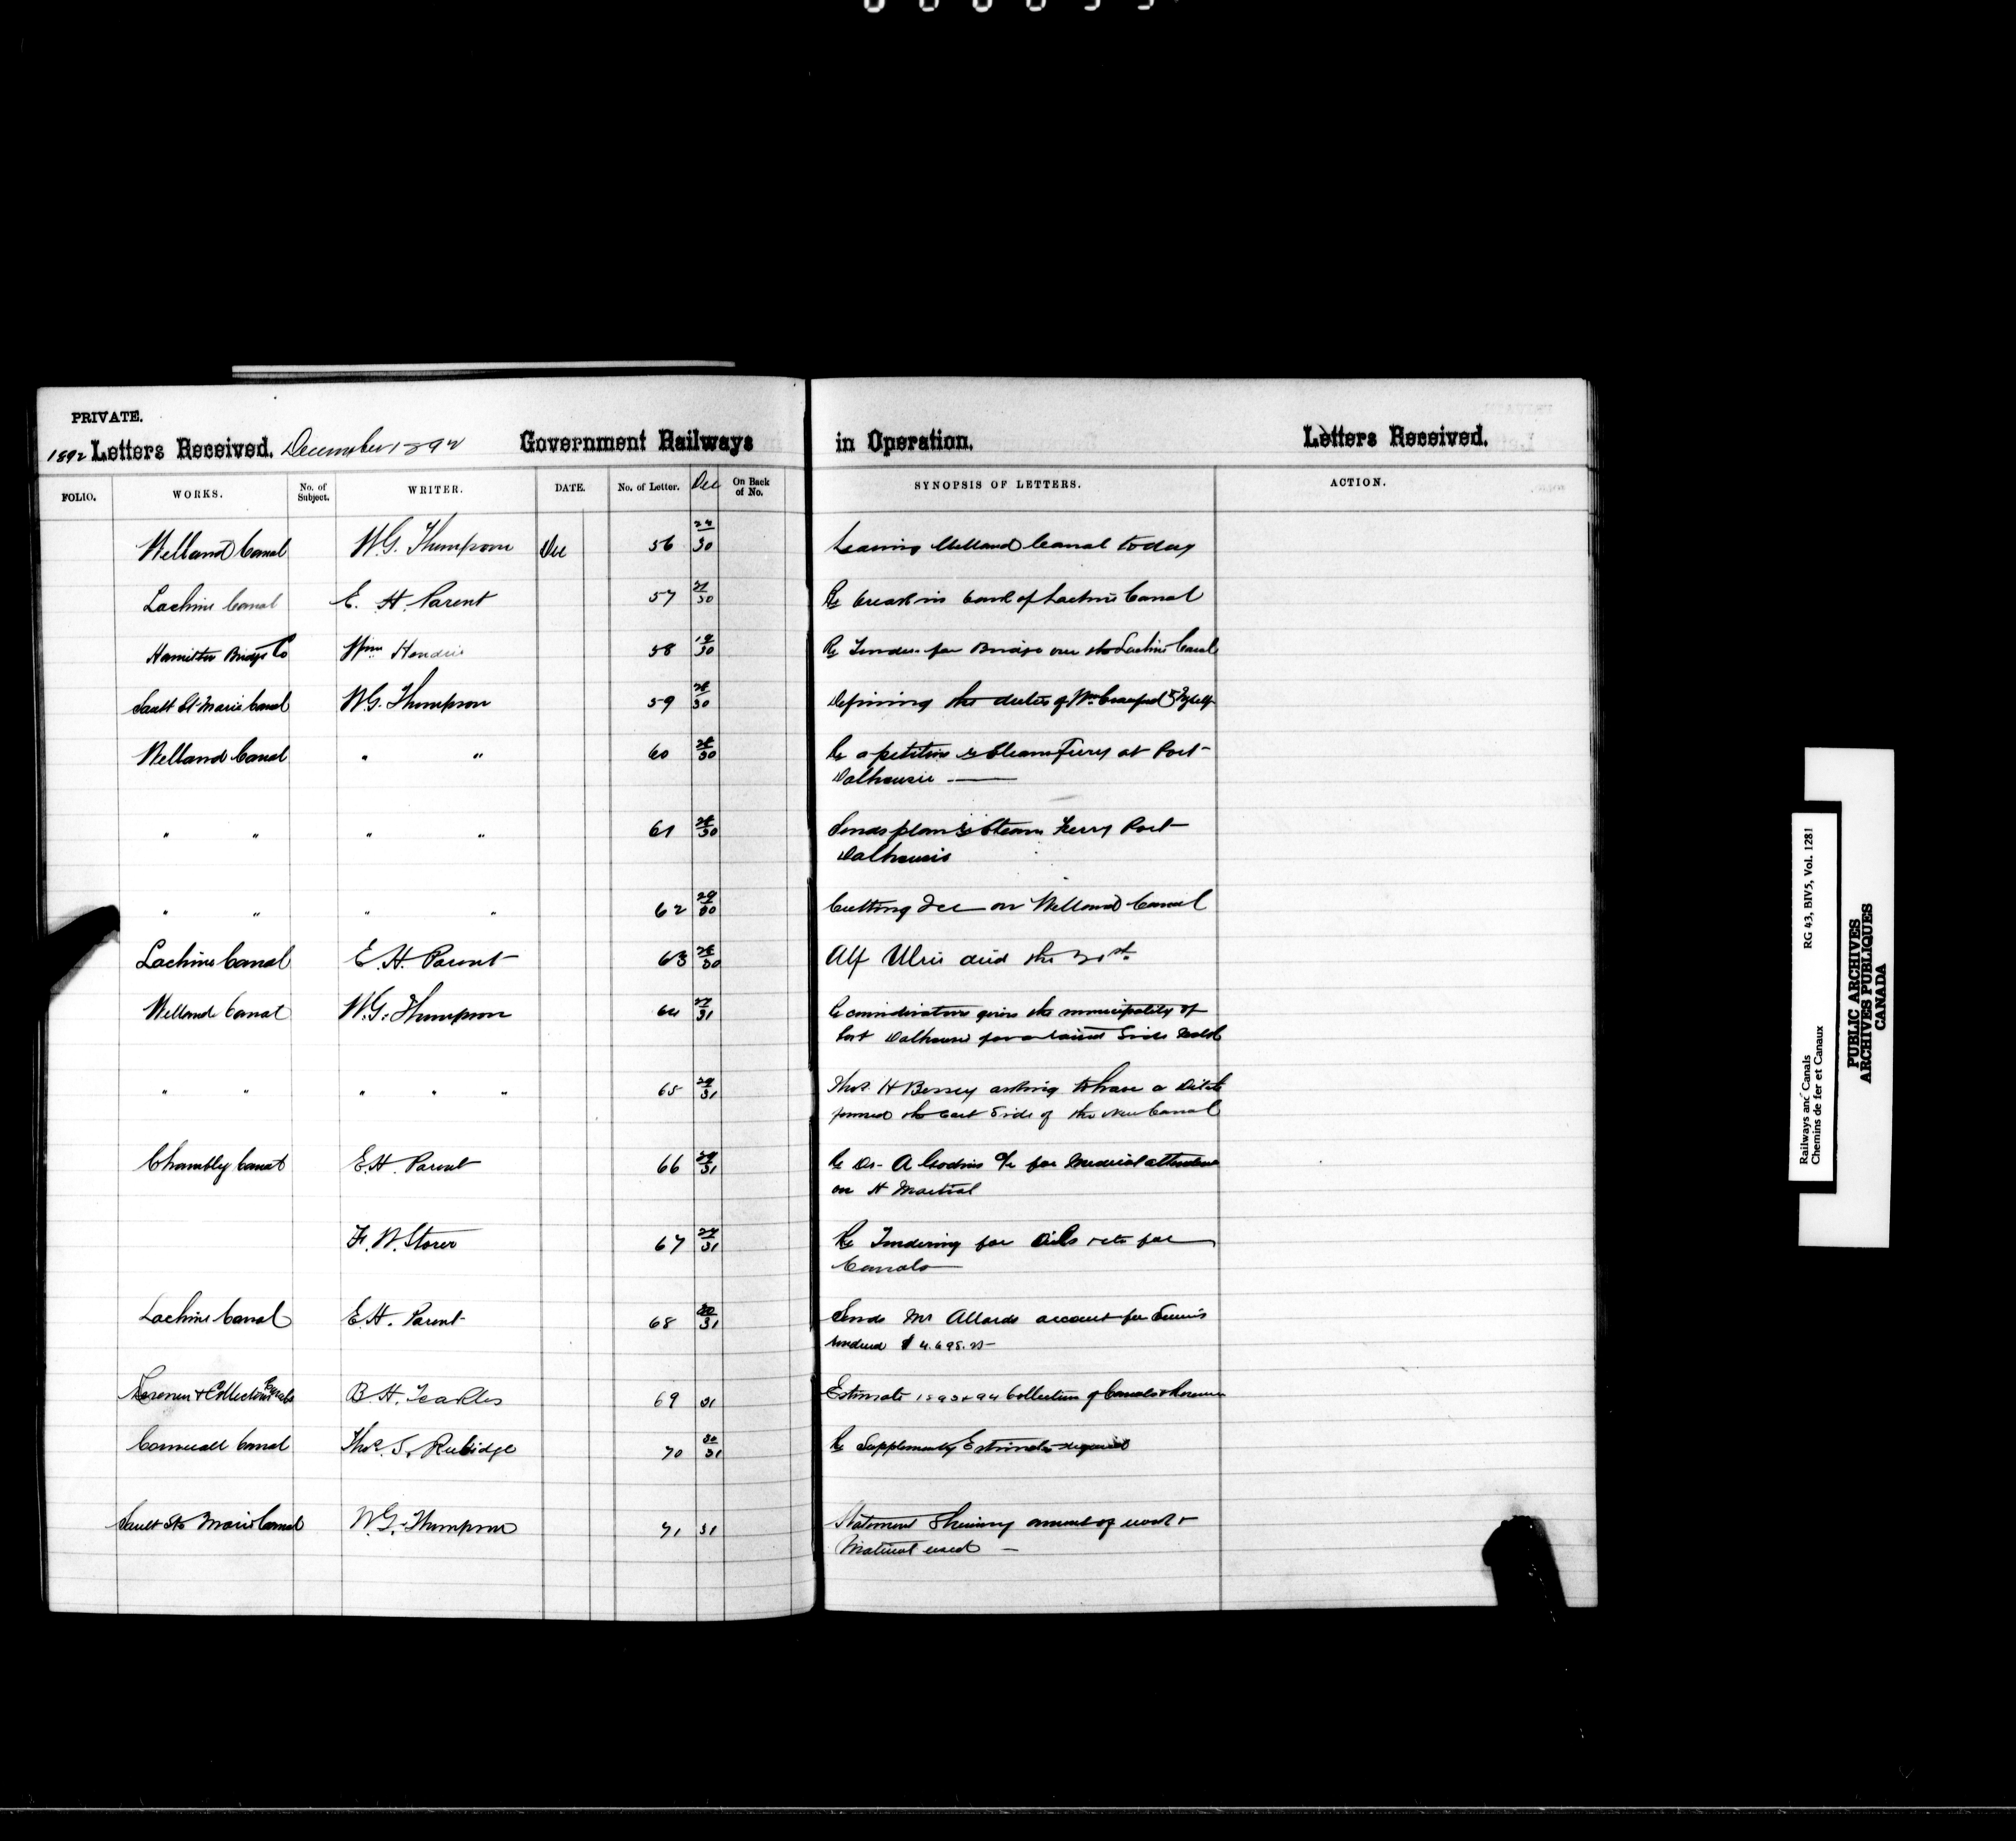 PRIVATE.
1892 Letters Received. December 1892 Government Railways in Operation. Letters Received.
FOLIO. WORKS. No. of Subject. WRITER. DATE. No. of Letter. Dec On Back of No. SYNOPSIS OF LETTERS. ACTION.
Welland Canal W.G. Thompson Dec 56 30 Leaving Welland Canal today
Lachine Canal E. H. Parent 57 30 Re break in bank of Lachine Canal
Hamilton Bridge Co Wm Hendrie 58 19/30 Re Tender for Bridge over the Lachine Canal
Sault St Marie Canal W.G. Thompson 59 28/30 Defining the duties of Wm Crawford & Myself
Welland Canal " " 60 28/30 Re a petition re Steam Ferry at Port
Dalhousie
" " " " 61 28/30 Sends plan re Steam Ferry Port
Dalhousie
" " " " 62 29/30 Cutting Ice on Welland Canal
Lachine Canal E. H. Parent 63 28/30 Alf died the
Welland Canal W.G. Thompson 64 31 Re consideration given the municipality of
Port Dalhousie for a raised Side Walk
" " " " " 65 29/31 Thos. H Bessey asking to have a Ditch
formed the East Side of the New Canal
Chambly Canal E.H. Parent 66 29/31 Re Dr. A Godins a/c for Medical attendance
on H Martial
F. W. Storer 67 31 Re Tendering for Oils etc for
Canals
Lachine Canal E.H. Parent 68 30/31 Sends Mr Allards account for
rendered $ 4.695.25
Revenue & Collection Canals B. H. 69 31 Estimate 1893 & 94 Collection of Canals & Revenue
Cornwall Canal Thos. S. Rubidge 70 30/31 Re Supplementy Estimate required
Sault Ste Marie Canal W.G. Thompson 71 31 Statement Showing amount of work &
Material used
Railways and Canals RG 43, BIV5, Vol. 1281
Chemins de fer et Canaux
PUBLIC ARCHIVES
ARCHIVES PUBLIQUES
CANADA